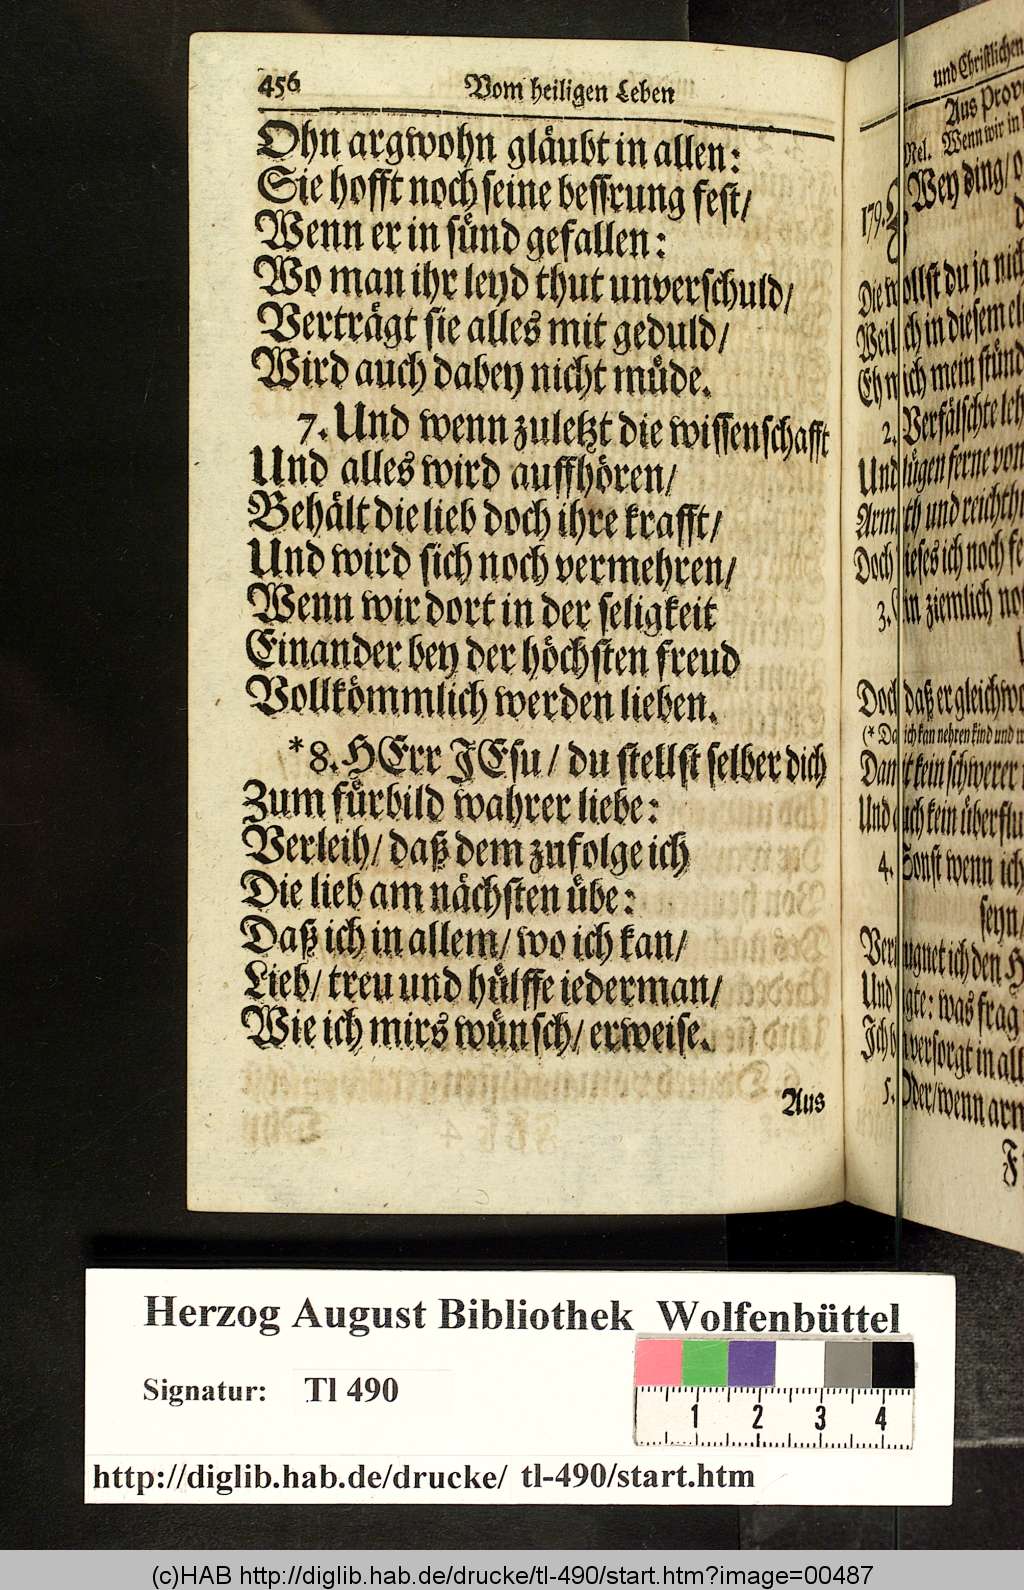 456 Vom heiligen Leben
Ohn argwohn gläubt in allen:
Sie hofft noch seine bessrung fest/
Wenn er in sünd gefallen:
Wo man ihr leyd thut unverschuld/
Verträgt sie alles mit geduld/
Wird auch dabey nicht müde.
7. Und wenn zuletzt die wissenschafft
Und alles wird auffhören/
Behält die lieb doch ihre krafft/
Und wird sich noch vermehren/
Wenn wir dort in der seligkeit
Einander bey der höchsten freud
Vollkömmlich werden lieben.
*8. HErr JEsu/ du stellst selber dich
Zum fürbild wahrer liebe:
Verleih/ daß dem zufolge ich
Die lieb am nächsten übe:
Daß ich in allem/ wo ich kan/
Lieb/ treu und hülffe iederman/
Wie ich mirs wünsch/ erweise.
Aus
und Christlichen
Aus Prov
Mel. Wenn wir in
179. Wey ding/
Die wollst du ja nich
Weil ich in diesem el
Eh ich mein stünd
2. Verfälschte leh
Und lügen ferne von
Armuth und reichth
Doch dieses ich noch
3. ziemlich
Doch daß er gleichwo
(* Da ich kan nehren kind und
Damit kein schwerer
Und auch kein überflu
4. Sonst wenn ich
seyn/
Verleugnet ich den H
Und sagte: was frag
Ich bin versorgt in all
5. Oder/ wenn arm
Herzog August Bibliothek Wolfenbüttel
Signatur: Tl 490
1 2 3 4
http://diglib.hab.de/drucke/ tl-490/start.htm
(c)HAB http://diglib.hab.de/drucke/tl-490/start.htm?image=00487